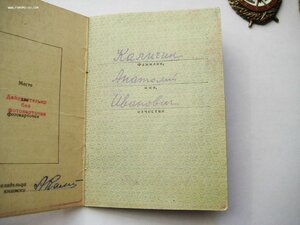 Место
Действительно
без
фотокарточки
фотокарточки
владельца
книжки
Калитин
фамилия,
Анатолий
имя,
Иванович
отчество